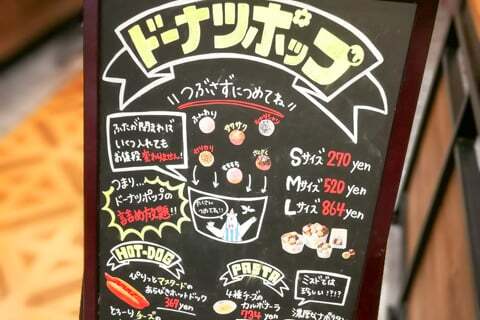 ドーナツポップ
つぶさずにつめてね
ふんわり
サクサク
もっちり
ふたが閉まれば
いくつ入れても
お値段変わりません!
つまり...
ドーナツポップの
詰め放題!!
たくさん
つめてね!!
Sサイズ 270yen
Mサイズ 520yen
Lサイズ 864yen
HOT-DOG
ぴりっとマスタードの
あらびきホットドッグ
367yen
とろーりチーズの
PASTA
4種チーズの
カルボナーラ
734yen
ミスドでは
珍しい!?!?